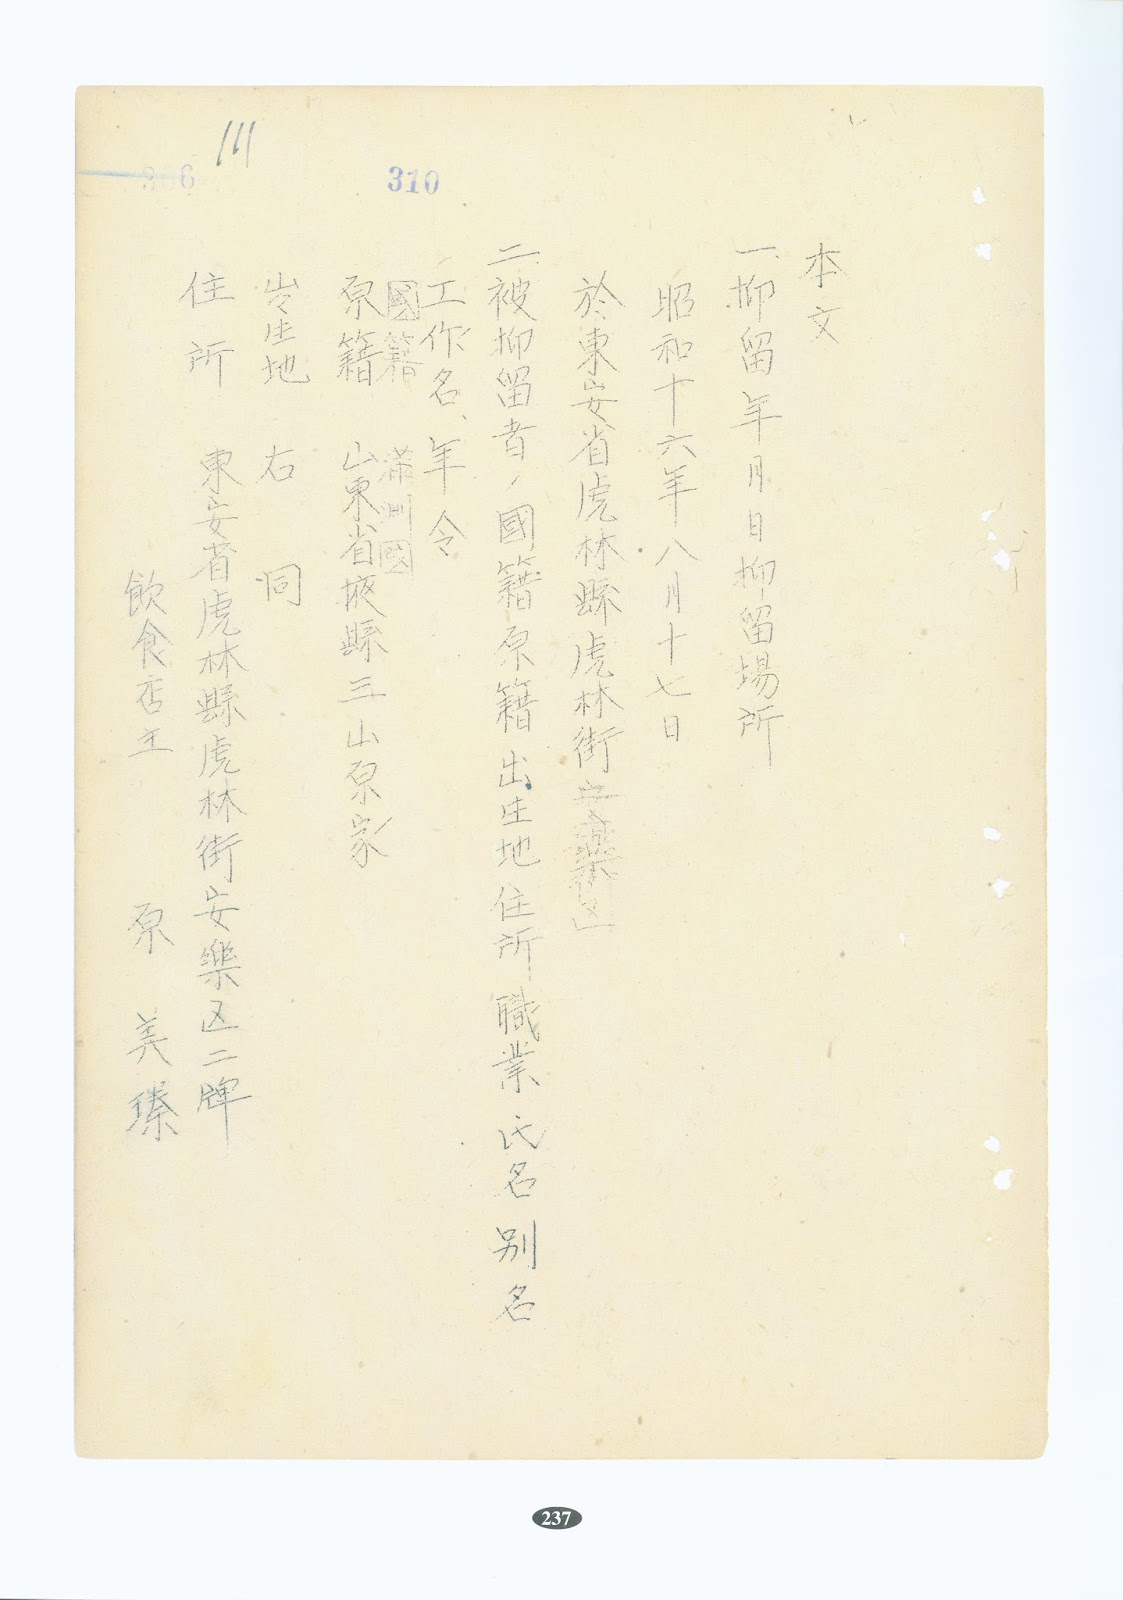 本文
一、抑留年月日抑留場所
昭和十六年八月十七日
於東安省虎林縣虎林街安樂区
二、被抑留者ノ國籍原籍出生地住所職業氏名別名
工作名、年令
國籍 滿洲國
原籍 山東省掖縣三山原家
出生地 右同
住所 東安省虎林縣虎林街安樂区二牌
飲食店主 原美瑧
111
306
310
237